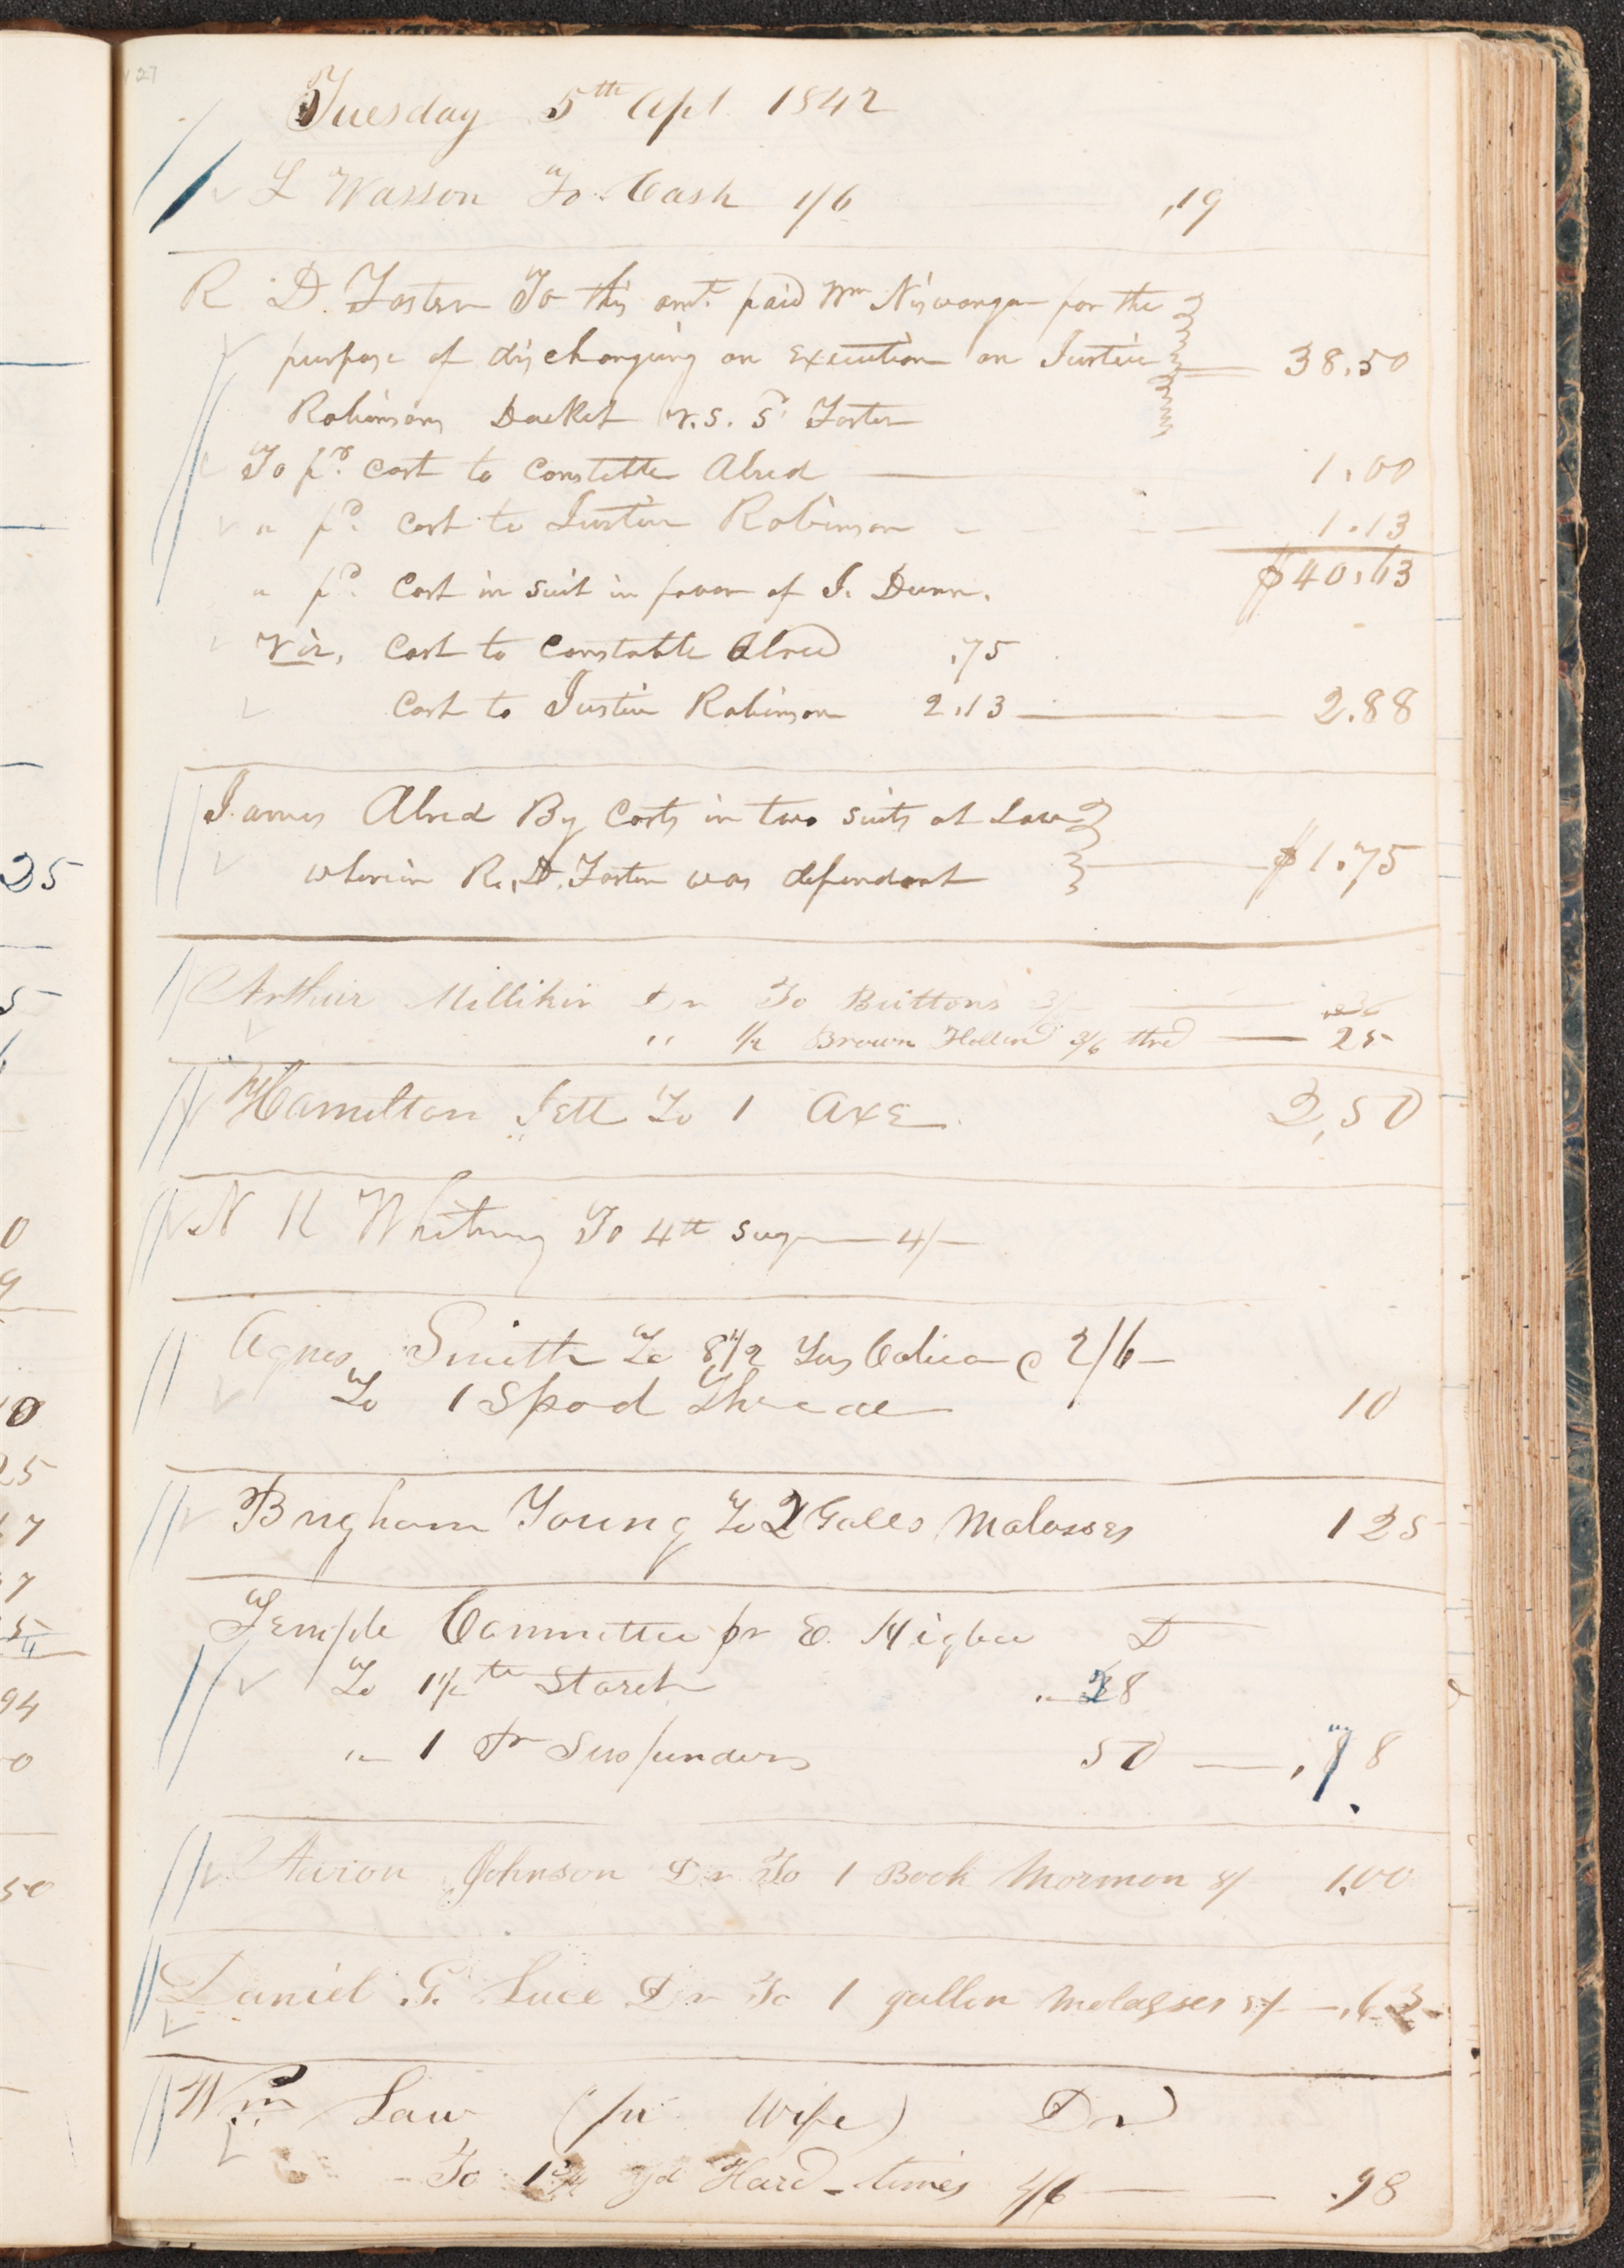 127
Tuesday 5th Apl 1842
L Wasson To Cash 1/6 ,19
R. D. Foster To this amt. paid Wm Niswanger for the
purpose of dischargeing an Execution on Justice 38.50
Robinsons Docket v.s. S Foster
To pd. cost to Constable Alred 1.00
" pd. cost to Justice Robinson 1.13
$40.63
" pd. Cost in suit in favor of J. Dunn.
Viz, Cost to Constable Alred .75
Cost to Justice Robinson 2.13 2.88
James Alred By Costs in two suits at Law
wherein R. D. Foster was defendant $1.75
Arthur Millikin Dr To Buttons
" 1/2 Brown Holland 3/6 thrd 25
Hamilton Jett To 1 Axe 2,50
N K Whitney To 4 lb Sugr 4/-
Agnes Smith To 8 1/2 Yds Calico @ 2/6
To 1 Spool Thread 10
Brigham Young To 2 Galls Molasses 1 25
Temple Committee pr E. Higbee D
To 1 1/2 lb Starch 28
" 1 Pr Suspenders 50 .78
Aaron Johnson Dr To 1 Book Mormon 8/ 1.00
Daniel G. Luce Dr To 1 gallon Molasses 5/ .63
Wm Law (pr Wife) Dr
To 1 3/4 yd Hard-times 4/6 .98
25
5
0
9
10
25
7
7
94
0
50